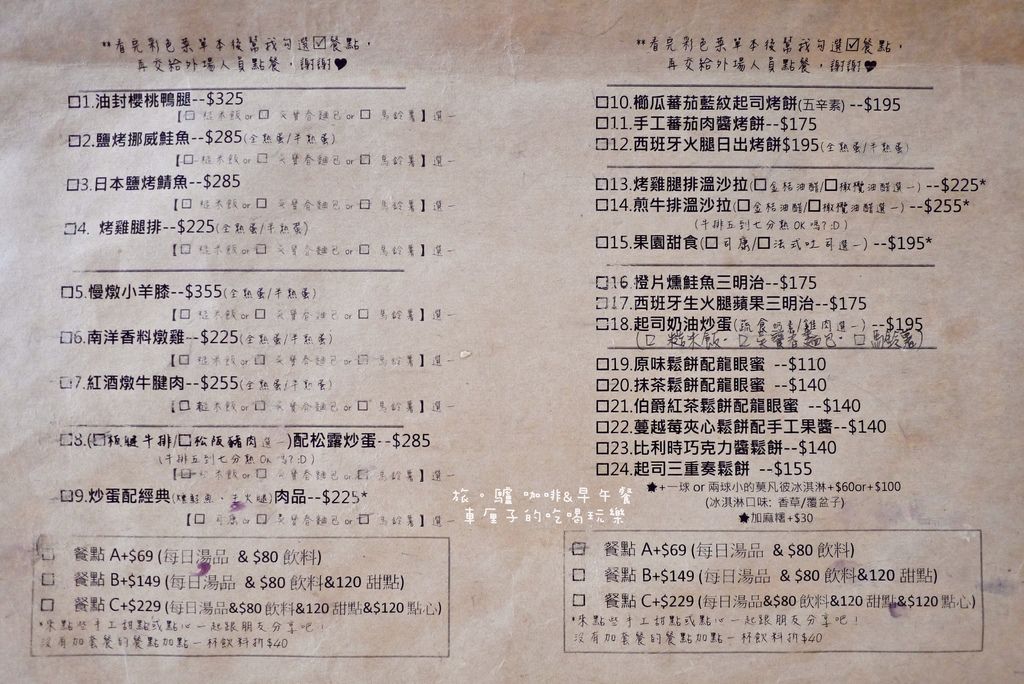 **看完彩色菜單本後幫我勾選☑餐點，
再交給外場人員點餐，謝謝♥
□1.油封櫻桃鴨腿--$325
【□ 糙米飯or □ 天貝香麵包 or □ 馬鈴薯】選一
□2.鹽烤挪威鮭魚--$285(全熟蛋/半熟蛋)
【□ 糙米飯or □ 麵包 or □ 馬鈴薯】選一
□3.日本鹽烤鯖魚--$285
【□ 糙米飯or □ 麵包 or □ 馬鈴薯】選一
□4. 烤雞腿排--$225(全熟蛋/半熟蛋)
【□ 糙米飯or □ 麵包 or □ 馬鈴薯】選一
□5.慢燉小羊膝--$355(全熟蛋/半熟蛋)
【□ 糙米飯or □ 麵包 or □ 馬鈴薯】選一
□6.南洋香料燉雞--$225(全熟蛋/半熟蛋)
【□ 糙米飯or □ 麵包 or □ 馬鈴薯】選一
□7.紅酒燉牛腱肉--$255(全熟蛋/半熟蛋)
【□ 糙米飯or □ 麵包 or □ 馬鈴薯】選一
□8.(□板腱牛排/□松阪豬肉選一)配松露炒蛋--$285
(牛排五到七分熟OK嗎?:D)
【□ 糙米飯or □ 麵包 or □ 馬鈴薯】選一
□9.炒蛋配經典(燻鮭魚、生火腿)肉品--$225*
【□ 可頌/or □ 麵包 or □ 馬鈴薯】選一
□ 餐點 A+$69 (每日湯品 & $80 飲料)
□ 餐點 B+$149 (每日湯品 & $80 飲料&120 甜點)
□ 餐點 C+$229 (每日湯品&$80 飲料&120 甜點&$120 點心)
*來點些手工甜點或點心一起跟朋友分享吧！
沒有加套餐的餐點加點一杯飲料折$40
**看完彩色菜單本後幫我勾選☑餐點，
再交給外場人員點餐，謝謝♥
□10.櫛瓜蕃茄藍紋起司烤餅(五辛素) --$195
□11.手工蕃茄肉醬烤餅--$175
□12.西班牙火腿日出烤餅$195(全熟蛋/半熟蛋)
□13.烤雞腿排溫沙拉(□金桔油醋/□橄欖油醋選一) --$225*
□14.煎牛排溫沙拉(□金桔油醋/□橄欖油醋選一) --$255*
(牛排五到七分熟OK嗎?:D)
□15.果園甜食(□可頌/□法式吐司選一) --$195*
□16.橙片燻鮭魚三明治--$175
□17.西班牙生火腿蘋果三明治--$175
□18.起司奶油炒蛋(蔬食奶素/雞肉選一)--$195
(□ 糙米飯. □ 麵包. □ 馬鈴薯)
□19.原味鬆餅配龍眼蜜 --$110
□20.抹茶鬆餅配龍眼蜜 --$140
□21.伯爵紅茶鬆餅配龍眼蜜 --$140
□22.蔓越莓夾心鬆餅配手工果醬--$140
□23.比利時巧克力醬鬆餅--$140
□24.起司三重奏鬆餅 --$155
★+一球 or 兩球小的莫凡彼冰淇淋+$60or+$100
(冰淇淋口味: 香草/覆盆子)
★加麻糬+$30
□ 餐點 A+$69 (每日湯品 & $80 飲料)
□ 餐點 B+$149 (每日湯品 & $80 飲料&120 甜點)
□ 餐點 C+$229 (每日湯品&$80 飲料&120 甜點&$120 點心)
*來點些手工甜點或點心一起跟朋友分享吧！
沒有加套餐的餐點加點一杯飲料折$40
旅。驢 咖啡&早午餐
車厘子的吃喝玩樂